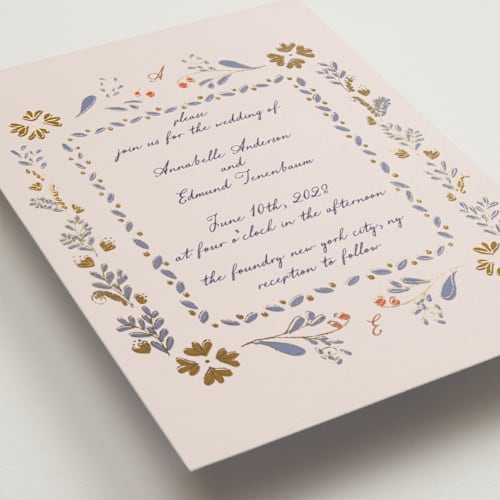 A
please
join us for the wedding of
Annabelle Anderson
and
Edmund Tenenbaum
June 10th, 2028
at four o'clock in the afternoon
the foundry new york city, ny
reception to follow
E